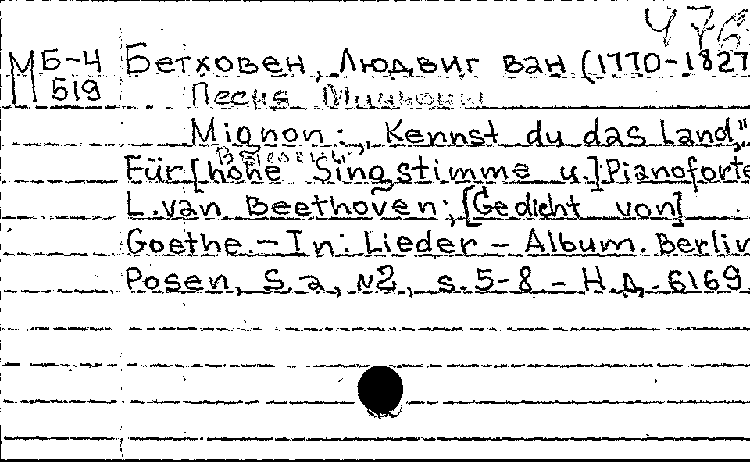 476
М Б-4 Бетховен, Людвиг ван (1770-1827
519 Песня Миньоны
Mignon: „Kennst du das Land,"
Für [hohe Singstimme u.] Pianoforte
L. van Beethoven; [Gedicht von]
Goethe. - In: Lieder - Album. Berlin
Posen, S.a, №2, s. 5-8 - Н.д. 6169